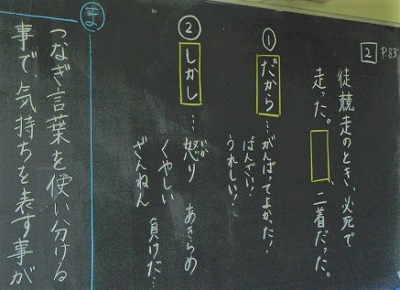 2 P.83
徒競走のとき、必死で
走った。□、二着だった。
① だから…がんばってよかた!
ばんざい!
うれしい!
② しかし…怒り あきらめ
いか
くやしい 負けた…
ざんねん
ま
つなぎ言葉を使い分ける
事で、気持ちを表す事が